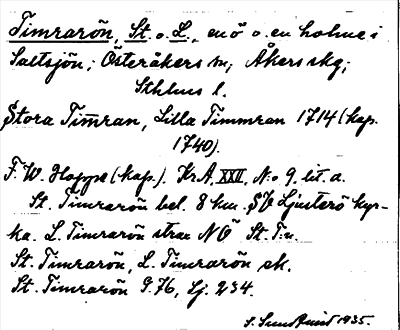 Timrarön, St. o. L., en ö o. en holme i
Saltsjön; Österåkers sn; Åkers skg;
Sthlms l.
Stora Tim̅ran, Lilla Timmran 1714 (kop.
1740).
F. W. Hoppe (kop.). KrA, XXII, N:o 9, lit. a.
St. Timrarön bel. 8 km. SV Ljusterö kyr-
ka. L. Timrarön strax NÖ St. T:n.
St. Timrarön, L. Timrarön ek.
St. Timrarön G.76, Lj. 234.
S. 1935.